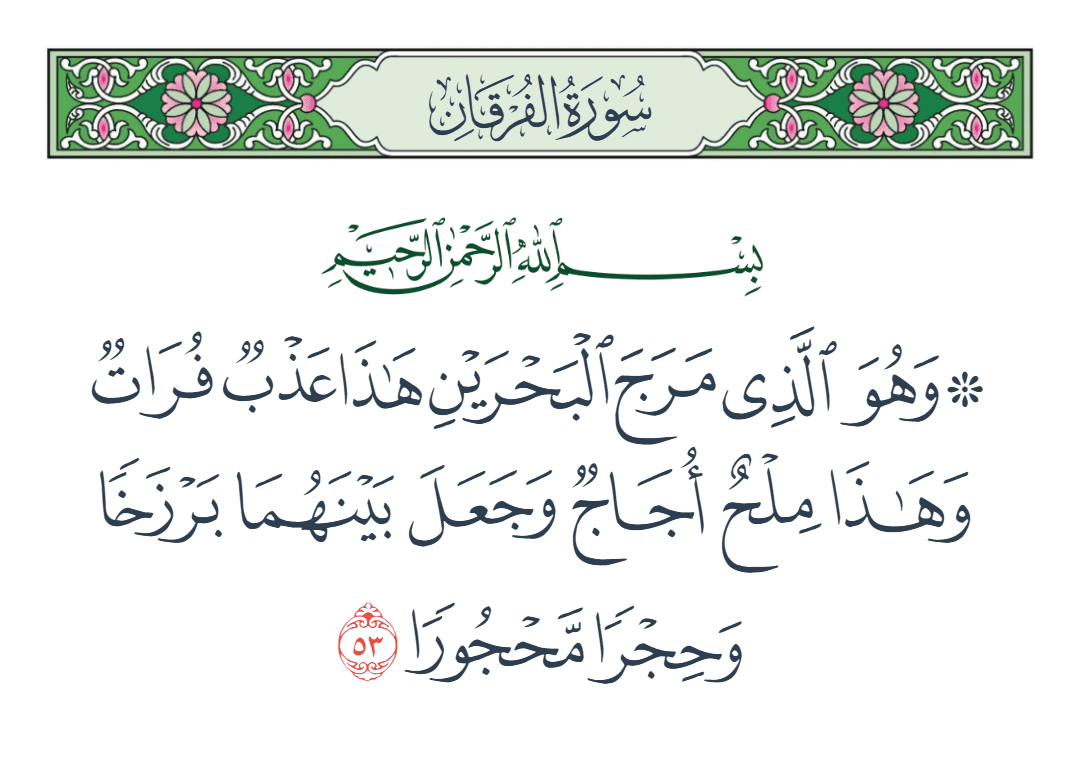 سُورَةُ الفُرْقَانِ
بِسْمِ ٱللَّهِ ٱلرَّحْمَٰنِ ٱلرَّحِيمِ
۞ وَهُوَ ٱلَّذِى مَرَجَ ٱلْبَحْرَيْنِ هَٰذَا عَذْبٌ فُرَاتٌ
وَهَٰذَا مِلْحٌ أُجَاجٌ وَجَعَلَ بَيْنَهُمَا بَرْزَخًا
وَحِجْرًا مَّحْجُورًا ٥٣